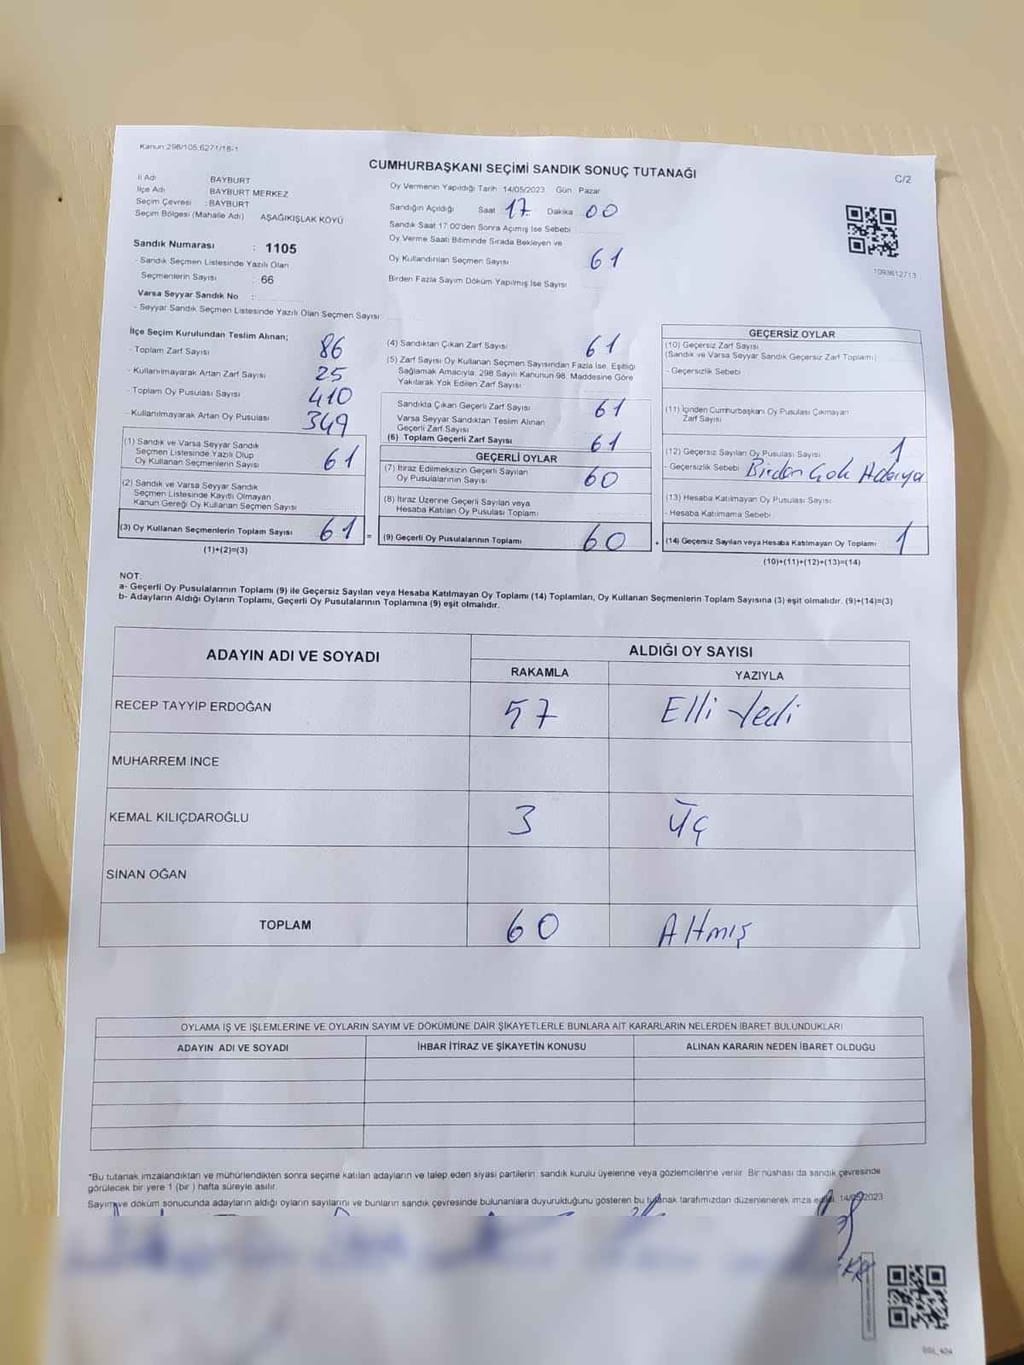 Kanun:298/105,6271/18-1
CUMHURBAŞKANI SEÇİMİ SANDIK SONUÇ TUTANAĞI
C/2
İl Adı BAYBURT
İlçe Adı BAYBURT MERKEZ
Seçim Çevresi : BAYBURT
Seçim Bölgesi (Mahalle Adı) AŞAĞIKIŞLAK KÖYÜ
Sandık Numarası : 1105
- Sandık Seçmen Listesinde Yazılı Olan
Seçmenlerin Sayısı : 66
Varsa Seyyar Sandık No :
- Seyyar Sandık Seçmen Listesinde Yazılı Olan Seçmen Sayısı:
Oy Vermenin Yapıldığı Tarih 14/05/2023 Gün Pazar
Sandığın Açıldığı Saat 17 Dakika 00
Sandık Saat 17:00'den Sonra Açımış İse Sebebi
Oy Verme Saati Bitiminde Sırada Bekleyen ve
Oy Kullandırılan Seçmen Sayısı 61
Birden Fazla Sayım Döküm Yapılmış İse Sayısı
1093612713
İlçe Seçim Kurulundan Teslim Alınan;
- Toplam Zarf Sayısı 86
- Kullanılmayarak Artan Zarf Sayısı 25
- Toplam Oy Pusulası Sayısı 410
- Kullanılmayarak Artan Oy Pusulası 349
(1) Sandık ve Varsa Seyyar Sandık
Seçmen Listesinde Yazılı Olup
Oy Kullanan Seçmenlerin Sayısı 61
(2) Sandık ve Varsa Seyyar Sandık
Seçmen Listesinde Kayıtlı Olmayan
Kanun Gereği Oy Kullanan Seçmen Sayısı
(3) Oy Kullanan Seçmenlerin Toplam Sayısı 61
(1)+(2)=(3)
(4) Sandıktan Çıkan Zarf Sayısı 61
(5) Zarf Sayısı Oy Kullanan Seçmen Sayısından Fazla İse, Eşitliği
Sağlamak Amacıyla, 298 Sayılı Kanunun 98. Maddesine Göre
Yakılarak Yok Edilen Zarf Sayısı
Sandıkta Çıkan Geçerli Zarf Sayısı 61
Varsa Seyyar Sandıktan Teslim Alınan
Geçerli Zarf Sayısı
(6) Toplam Geçerli Zarf Sayısı 61
GEÇERLİ OYLAR
(7) İtiraz Edilmeksizin Geçerli Sayılan
Oy Pusulalarının Sayısı 60
(8) İtiraz Üzerine Geçerli Sayılan veya
Hesaba Katılan Oy Pusulası Toplamı
= (9) Geçerli Oy Pusulalarının Toplamı 60
GEÇERSİZ OYLAR
(10) Geçersiz Zarf Sayısı
(Sandık ve Varsa Seyyar Sandık Geçersiz Zarf Toplamı)
- Geçersizlik Sebebi
(11) İçinden Cumhurbaşkanı Oy Pusulası Çıkmayan
Zarf Sayısı
(12) Geçersiz Sayılan Oy Pusulası Sayısı 1
- Geçersizlik Sebebi Birden Çok Adaya
(13) Hesaba Katılmayan Oy Pusulası Sayısı
- Hesaba Katılmama Sebebi
+ (14) Geçersiz Sayılan veya Hesaba Katılmayan Oy Toplamı 1
(10)+(11)+(12)+(13)=(14)
NOT:
a- Geçerli Oy Pusulalarının Toplamı (9) ile Geçersiz Sayılan veya Hesaba Katılmayan Oy Toplamı (14) Toplamları, Oy Kullanan Seçmenlerin Toplam Sayısına (3) eşit olmalıdır. (9)+(14)=(3)
b- Adayların Aldığı Oyların Toplamı, Geçerli Oy Pusulalarının Toplamına (9) eşit olmalıdır.
ADAYIN ADI VE SOYADI ALDIĞI OY SAYISI
RAKAMLA YAZIYLA
RECEP TAYYİP ERDOĞAN 57 Elli Yedi
MUHARREM İNCE
KEMAL KILIÇDAROĞLU 3 Üç
SİNAN OĞAN
TOPLAM 60 Altmış
OYLAMA İŞ VE İŞLEMLERİNE VE OYLARIN SAYIM VE DÖKÜMÜNE DAİR ŞİKAYETLERLE BUNLARA AİT KARARLARIN NELERDEN İBARET BULUNDUKLARI
ADAYIN ADI VE SOYADI İHBAR İTİRAZ VE ŞİKAYETİN KONUSU ALINAN KARARIN NEDEN İBARET OLDUĞU
*Bu tutanak imzalandıktan ve mühürlendikten sonra seçime katılan adayların ve talep eden siyasi partilerin sandık kurulu üyelerine veya gözlemcilerine verilir. Bir nüshası da sandık çevresinde
görülecek bir yere 1 (bir ) hafta süreyle asılır.
Sayım ve döküm sonucunda adayların aldığı oyların sayılarını ve bunların sandık çevresinde bulunanlara duyurulduğunu gösteren bu tutanak tarafımızdan düzenlenerek imza edildi. 14/05/2023